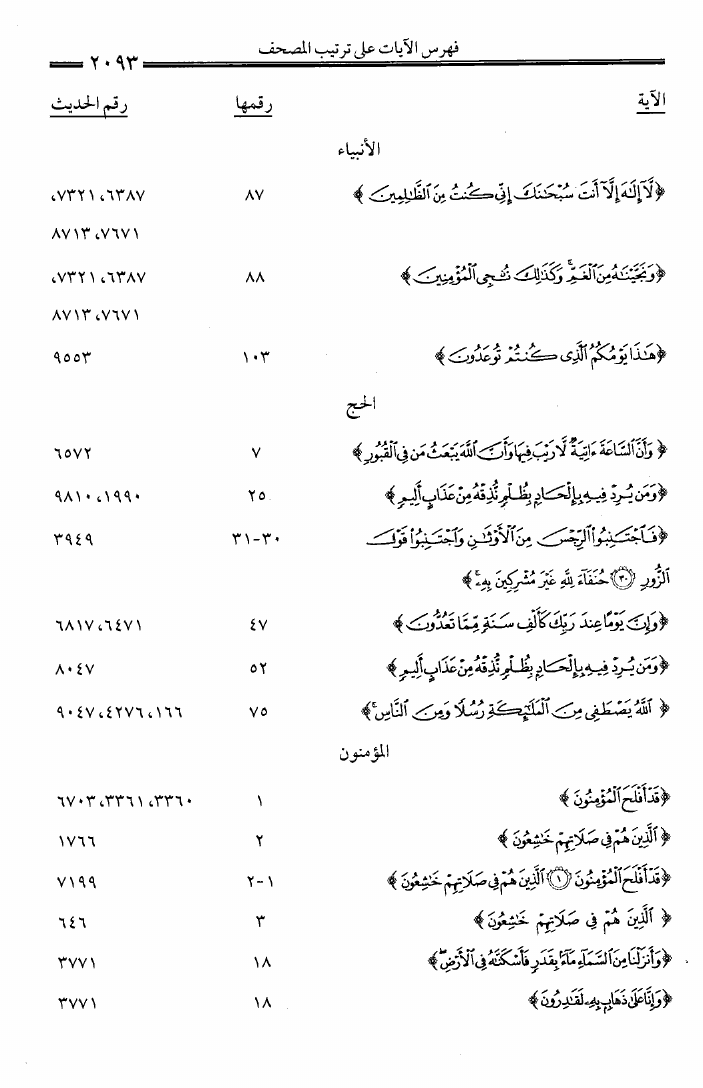 فهرس الآيات على ترتيب المصحف
٢٠٩٣
الآية رقمها رقم الحديث
الأنبياء
﴿لَّآ إِلَٰهَ إِلَّآ أَنتَ سُبْحَٰنَكَ إِنِّي كُنتُ مِنَ ٱلظَّٰلِمِينَ﴾ ٨٧ ٦٣٨٧، ٧٣٢١،
٧٦٧١، ٨٧١٣
﴿وَنَجَّيْنَٰهُ مِنَ ٱلْغَمِّ ۚ وَكَذَٰلِكَ نُۨجِي ٱلْمُؤْمِنِينَ﴾ ٨٨ ٦٣٨٧، ٧٣٢١،
٧٦٧١، ٨٧١٣
﴿هَٰذَا يَوْمُكُمُ ٱلَّذِي كُنتُمْ تُوعَدُونَ﴾ ١٠٣ ٩٥٥٣
الحج
﴿وَأَنَّ ٱلسَّاعَةَ ءَاتِيَةٌ لَّا رَيْبَ فِيهَا وَأَنَّ ٱللَّهَ يَبْعَثُ مَن فِي ٱلْقُبُورِ﴾ ٧ ٦٥٧٢
﴿وَمَن يُرِدْ فِيهِ بِإِلْحَادٍۭ بِظُلْمٍ نُّذِقْهُ مِنْ عَذَابٍ أَلِيمٍ﴾ ٢٥ ١٩٩٠، ٩٨١٠
﴿فَٱجْتَنِبُوا۟ ٱلرِّجْسَ مِنَ ٱلْأَوْثَٰنِ وَٱجْتَنِبُوا۟ قَوْلَ ٣٠-٣١ ٣٩٤٩
ٱلزُّورِ ٣٠ حُنَفَآءَ لِلَّهِ غَيْرَ مُشْرِكِينَ بِهِۦ ۚ﴾
﴿وَإِنَّ يَوْمًا عِندَ رَبِّكَ كَأَلْفِ سَنَةٍ مِّمَّا تَعُدُّونَ﴾ ٤٧ ٦٤٧١، ٦٨١٧
﴿وَمَن يُرِدْ فِيهِ بِإِلْحَادٍۭ بِظُلْمٍ نُّذِقْهُ مِنْ عَذَابٍ أَلِيمٍ﴾ ٥٢ ٨٠٤٧
﴿ٱللَّهُ يَصْطَفِي مِنَ ٱلْمَلَٰٓئِكَةِ رُسُلًا وَمِنَ ٱلنَّاسِ ۚ﴾ ٧٥ ١٦٦، ٤٢٧٦، ٩٠٤٧
المؤمنون
﴿قَدْ أَفْلَحَ ٱلْمُؤْمِنُونَ﴾ ١ ٣٣٦٠، ٣٣٦١، ٦٧٠٣
﴿ٱلَّذِينَ هُمْ فِي صَلَاتِهِمْ خَٰشِعُونَ﴾ ٢ ١٧٦٦
﴿قَدْ أَفْلَحَ ٱلْمُؤْمِنُونَ ١ ٱلَّذِينَ هُمْ فِي صَلَاتِهِمْ خَٰشِعُونَ﴾ ١-٢ ٧١٩٩
﴿ٱلَّذِينَ هُمْ فِي صَلَاتِهِمْ خَٰشِعُونَ﴾ ٣ ٦٤٦
﴿وَأَنزَلْنَا مِنَ ٱلسَّمَآءِ مَآءًۢ بِقَدَرٍ فَأَسْكَنَّٰهُ فِي ٱلْأَرْضِ ۖ﴾ ١٨ ٣٧٧١
﴿وَإِنَّا عَلَىٰ ذَهَابٍۭ بِهِۦ لَقَٰدِرُونَ﴾ ١٨ ٣٧٧١